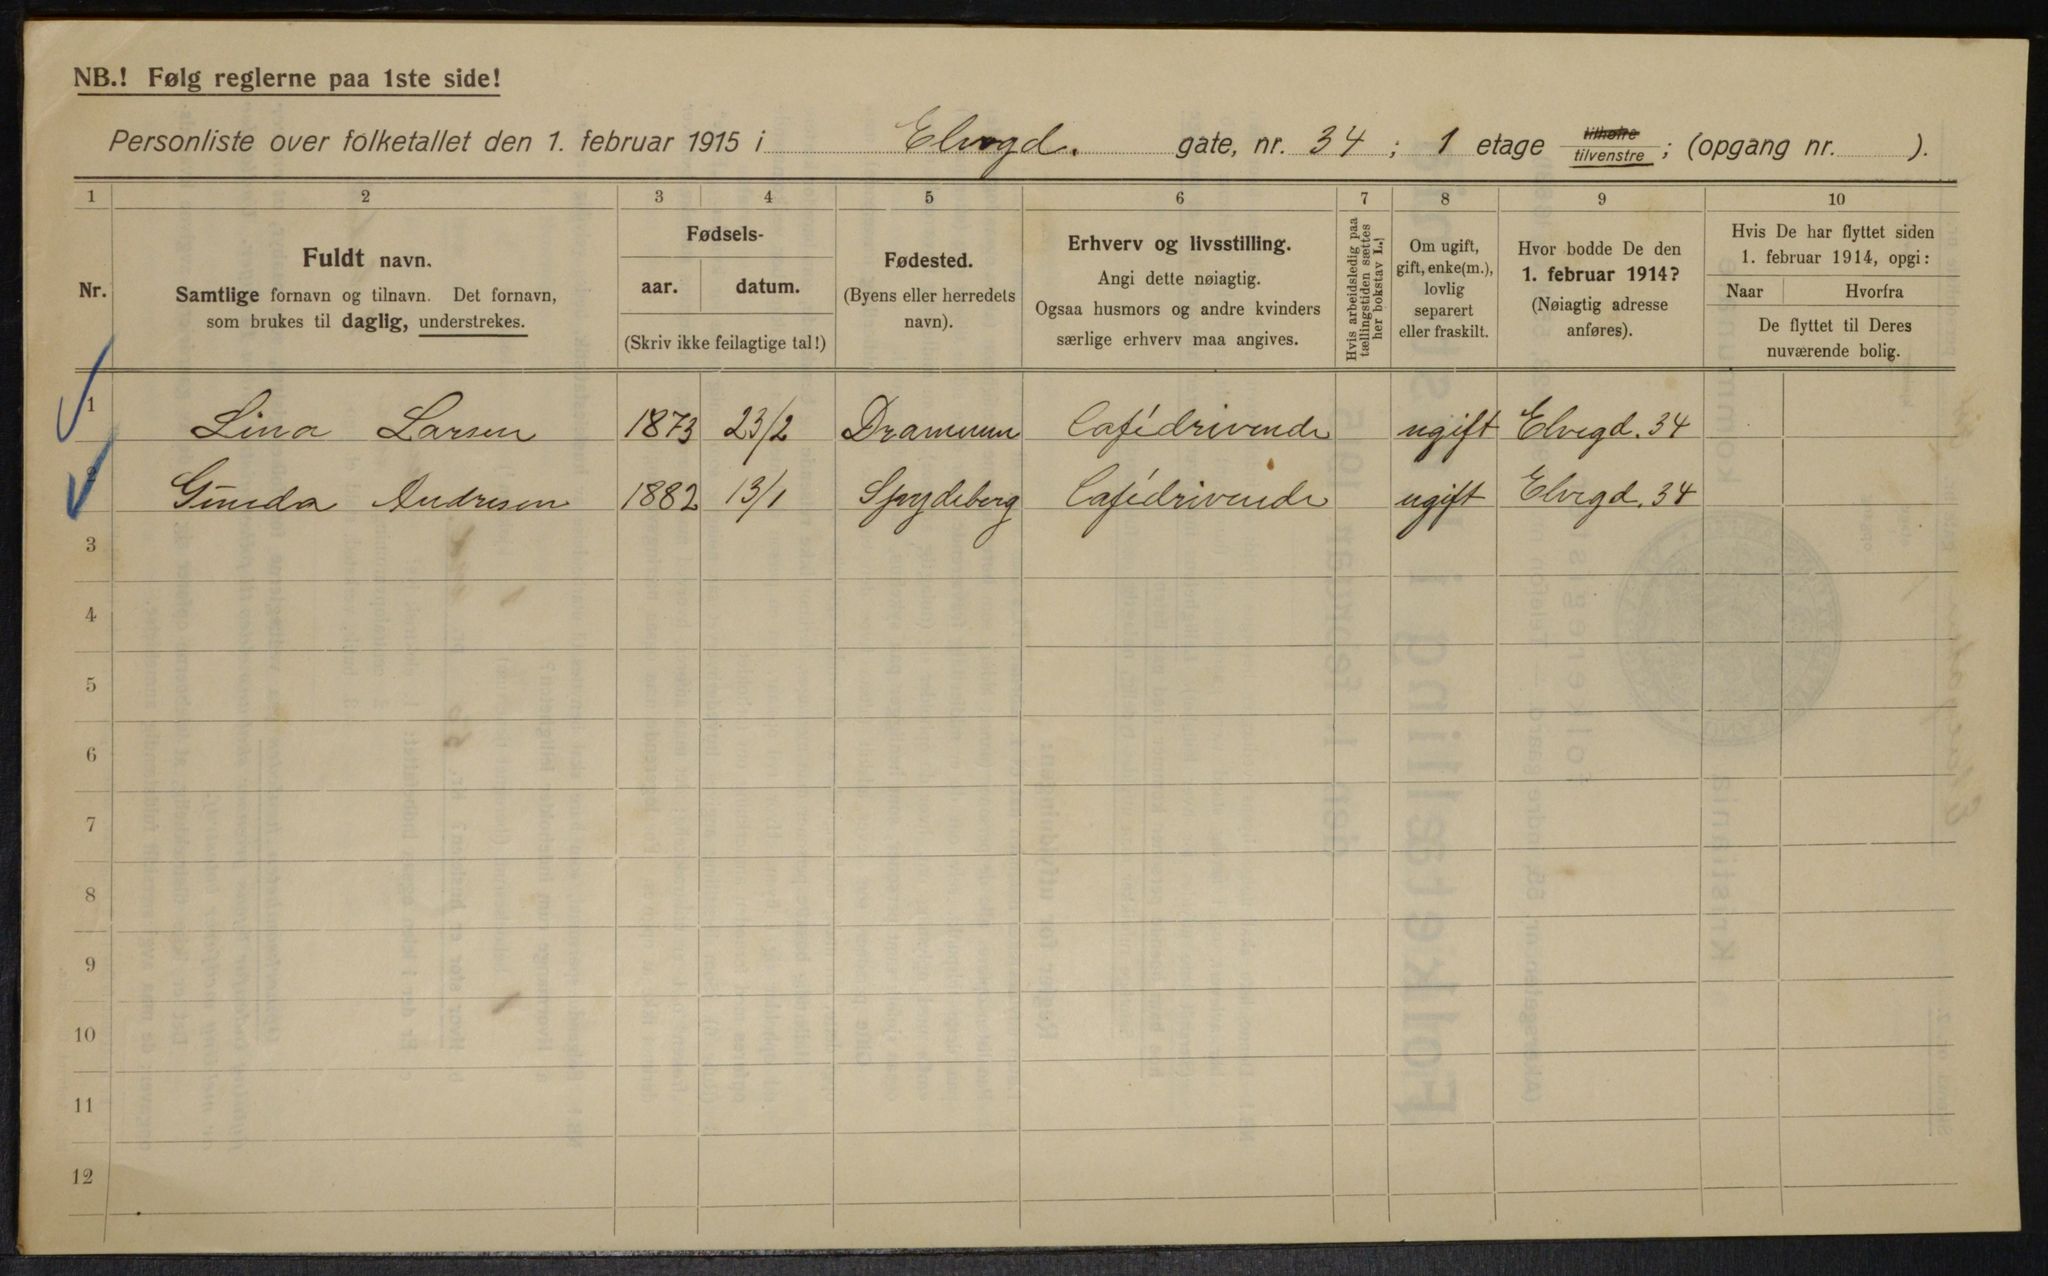 NB.! Følg reglerne paa 1ste side!
Personliste over folketallet den 1. februar 1915 i Elvegd. gate, nr. 34; 1 etage tilhøire / tilvenstre; (opgang nr. ).
1 2 3 4 5 6 7 8 9 10
Nr.
Fuldt navn.
Samtlige fornavn og tilnavn. Det fornavn,
som brukes til daglig, understrekes.
Fødsels-
aar. datum.
(Skriv ikke feilagtige tal!)
Fødested.
(Byens eller herredets
navn).
Erhverv og livsstilling.
Angi dette nøiagtig.
Ogsaa husmors og andre kvinders
særlige erhverv maa angives.
Hvis arbeidsledig paa
tællingstiden sættes
her bokstav L.!
Om ugift,
gift, enke(m.),
lovlig
separert
eller fraskilt.
Hvor bodde De den
1. februar 1914?
(Nøiagtig adresse
anføres).
Hvis De har flyttet siden
1. februar 1914, opgi:
Naar Hvorfra
De flyttet til Deres
nuværende bolig.
1 Lina Larsen 1873 23/2 Drammen Cafédrivende ugift Elvegd. 34
2 Gunda Andresen 1882 13/1 Spydeberg Cafédrivende ugift Elvegd. 34
3
4
5
6
7
8
9
10
11
12